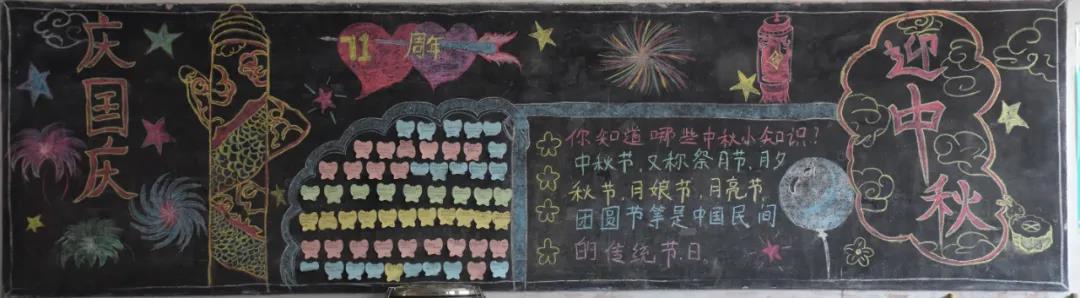 庆国庆
71周年
你知道哪些中秋小知识?
中秋节,又称祭月节、月夕
秋节、月娘节、月亮节、
团圆节等是中国民间
的传统节日。
迎中秋